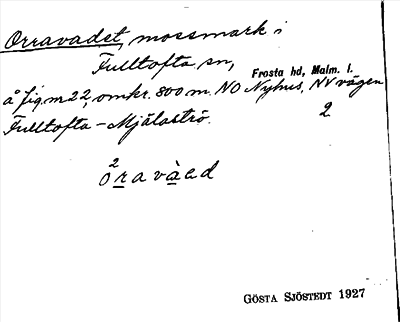 Orravadet, mossmark i
Fulltofta sn,
Frosta hd, Malm. l.
å fig m 22, omkr. 800 m. NO Nyhus, NV vägen
Fulltofta – Mjälaströ.
2
2
o r a v à ε d
GÖSTA SJÖSTEDT 1927